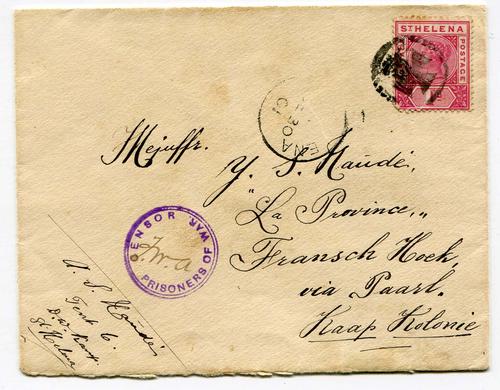 ST HELENA
POSTAGE
ENA
Mejuffr.
Y. S. Naudé,
"La Province,"
Fransch Hoek,
via Paarl.
Kaap Kolonie
CENSOR
PRISONERS OF WAR.
A. S. Naudé
Tent 6.
St Helena